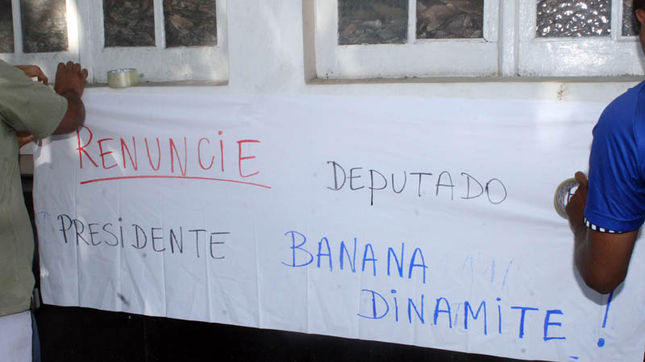 RENUNCIE
DEPUTADO
PRESIDENTE
BANANA
DINAMITE!